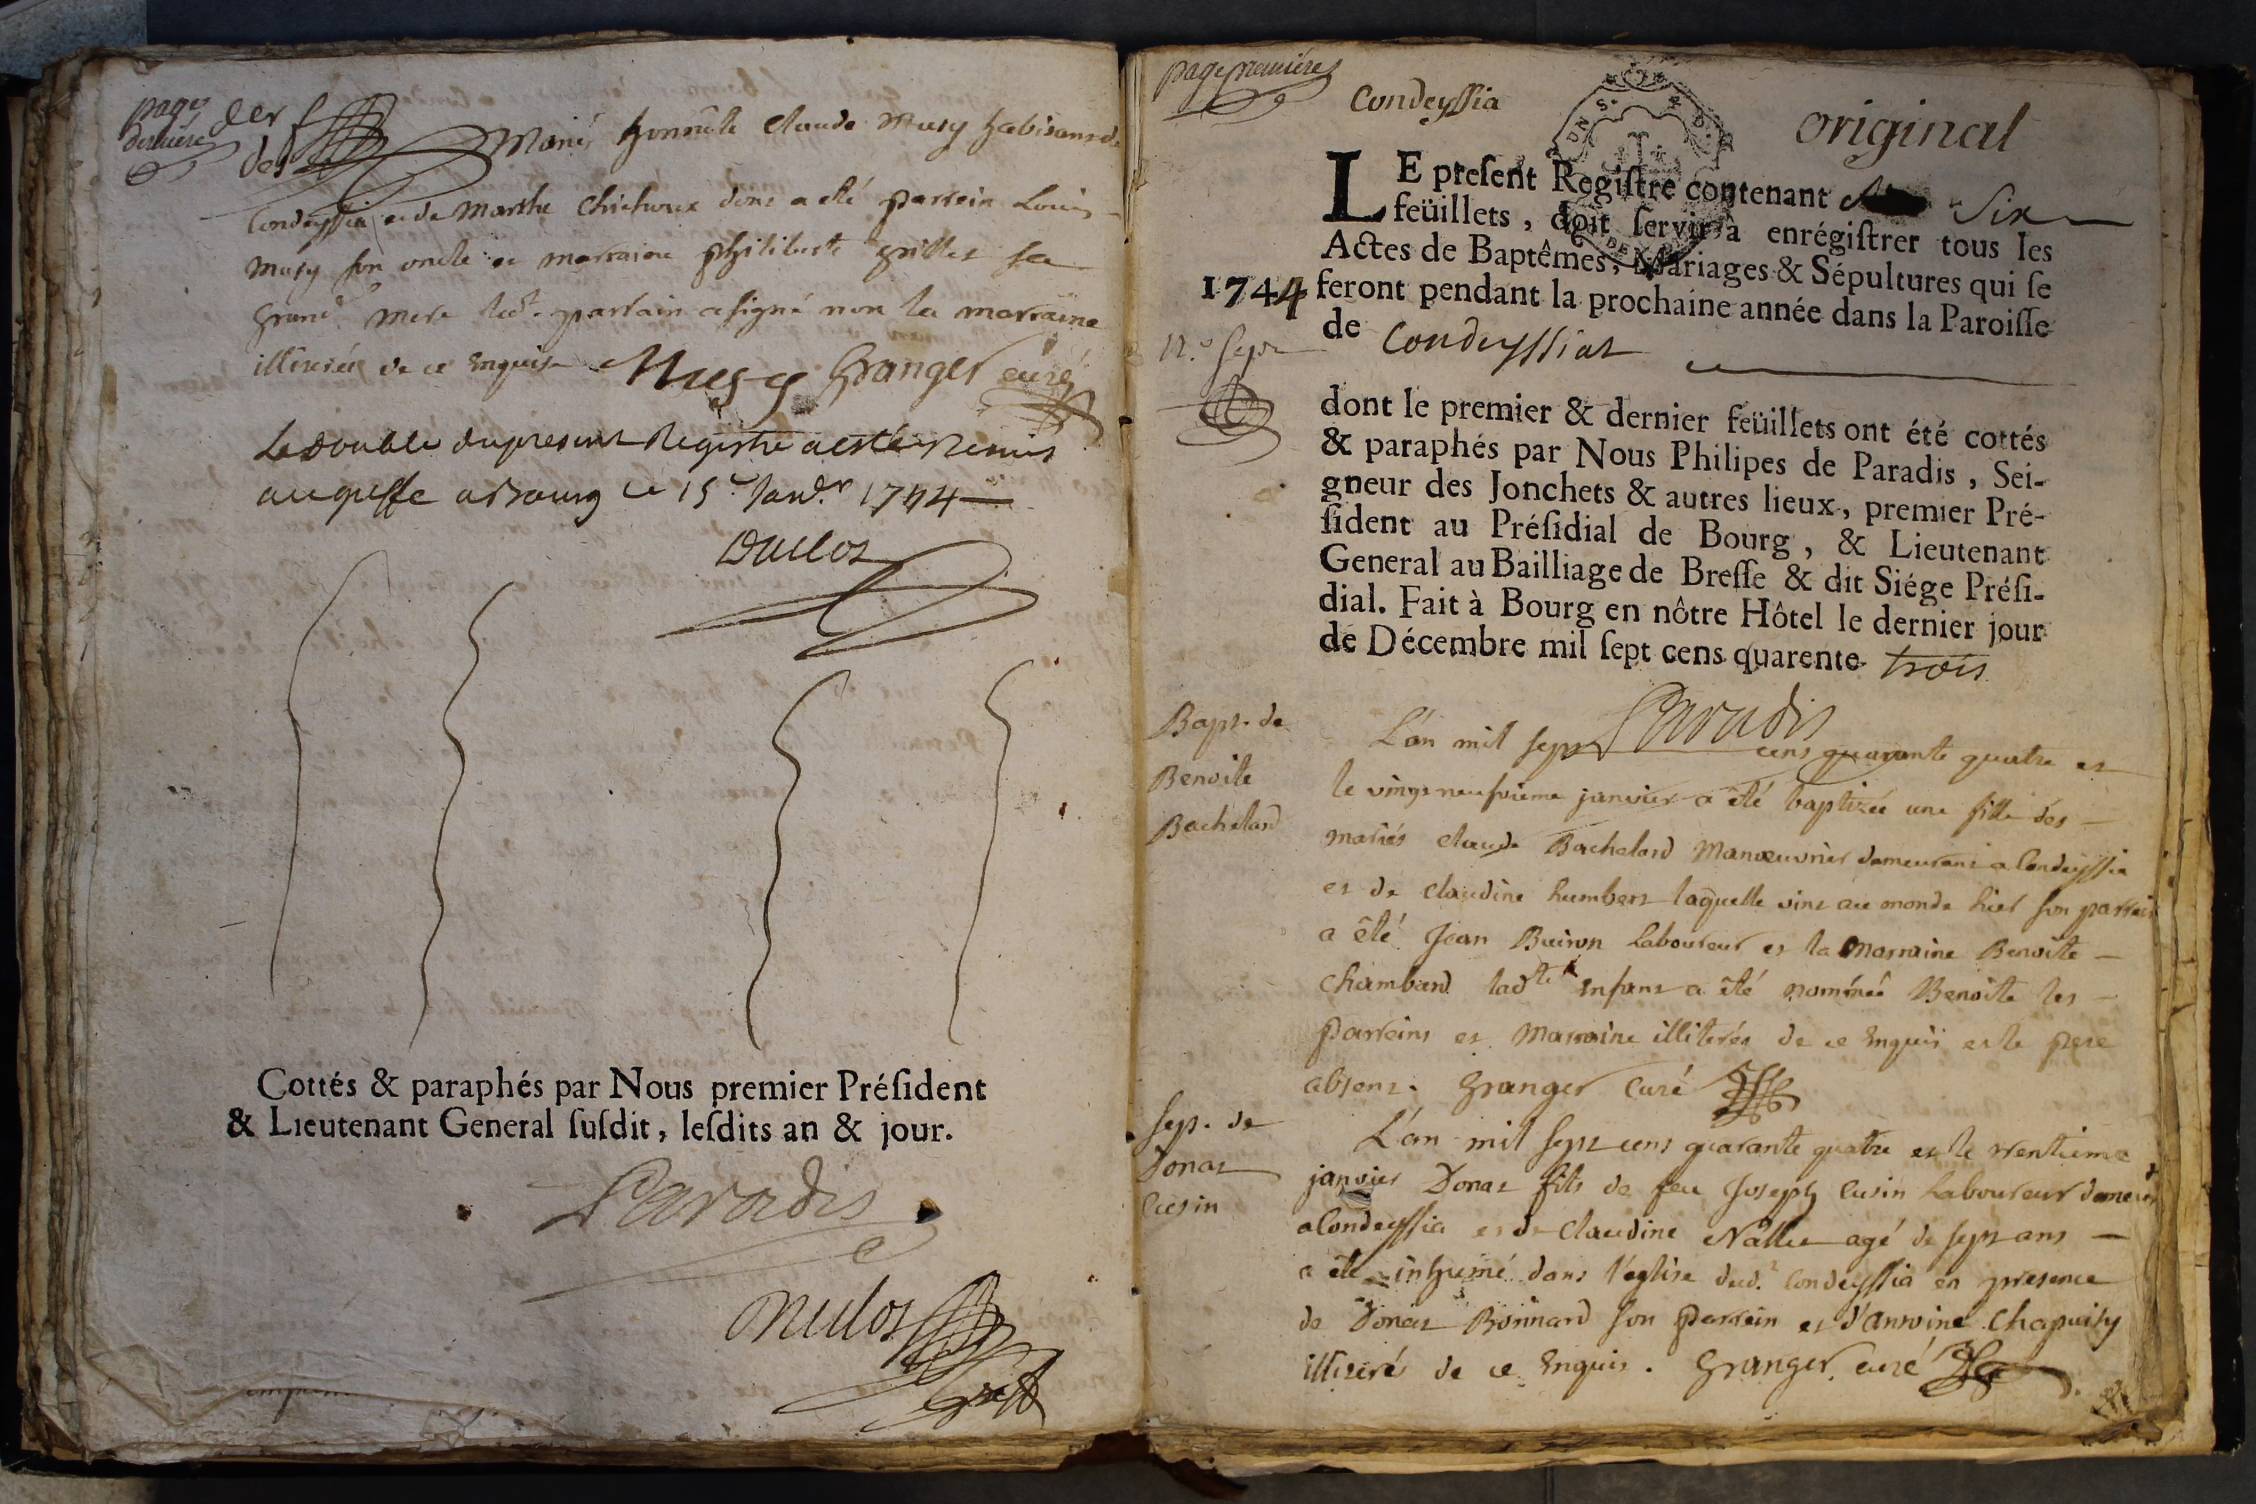 page
derniere
der
des
Mariés honnête Claude Musy habitant de
Condeyssia et de Marthe Chichoux dont a été parrein Louis
Musy son oncle et marraine philiberte grillet sa
grand mere led.t parrain a signé non la marraine
illiterée de ce Enquise Musy Granger curé
Le double du present Registre a esté remis
au greffe a Bourg ce 15.e Janv.r 1744
Duclos
Cottés & paraphés par Nous premier Préſident
& Lieutenant General ſuſdit, leſdits an & jour.
Paradis
Duclos
page premiére
Condeyssia
original
LE preſent Regiſtre contenant Six
feüillets, doit ſervir à enrégiſtrer tous les
Actes de Baptêmes, Mariages & Sépultures qui ſe
1744 feront pendant la prochaine année dans la Paroiſſe
de Condeyssiat
dont le premier & dernier feüillets ont été cottés
& paraphés par Nous Philipes de Paradis, Sei-
gneur des Jonchets & autres lieux, premier Pré-
ſident au Préſidial de Bourg, & Lieutenant
General au Bailliage de Breſſe & dit Siége Préſi-
dial. Fait à Bourg en nôtre Hôtel le dernier jour
de Décembre mil ſept cens quarente trois
Paradis
Bapt. de
Benoite
Bachelard
L'an mil sept cens quarante quatre et
le vingt neufvieme janvier a été baptizée une fille des
mariés claude Bachelard Manœuvrier demeurant a Condeyssia
et de claudine humbert laquelle vint au monde hier son parrein
a été Jean Buiron Laboureur et la Marraine Benoite
Chambard lad.te Enfant a été nommée Benoite les
parreins et Marraine illiterés de ce Enquis et le pere
absent. Granger Curé
sep. de
Donat
Cusin
L'an mil sept cens quarante quatre et le trentieme
janvier Donat fils de feu Joseph Cusin Laboureur demeurt
a Condeyssia et de Claudine Nallet agé de sept ans
a été inhumé dans l'église dud.t Condeyssia en presence
de Donat Bonnard son parrein et d'Antoine Chapuisy
illiteré de ce Enquis. Granger curé